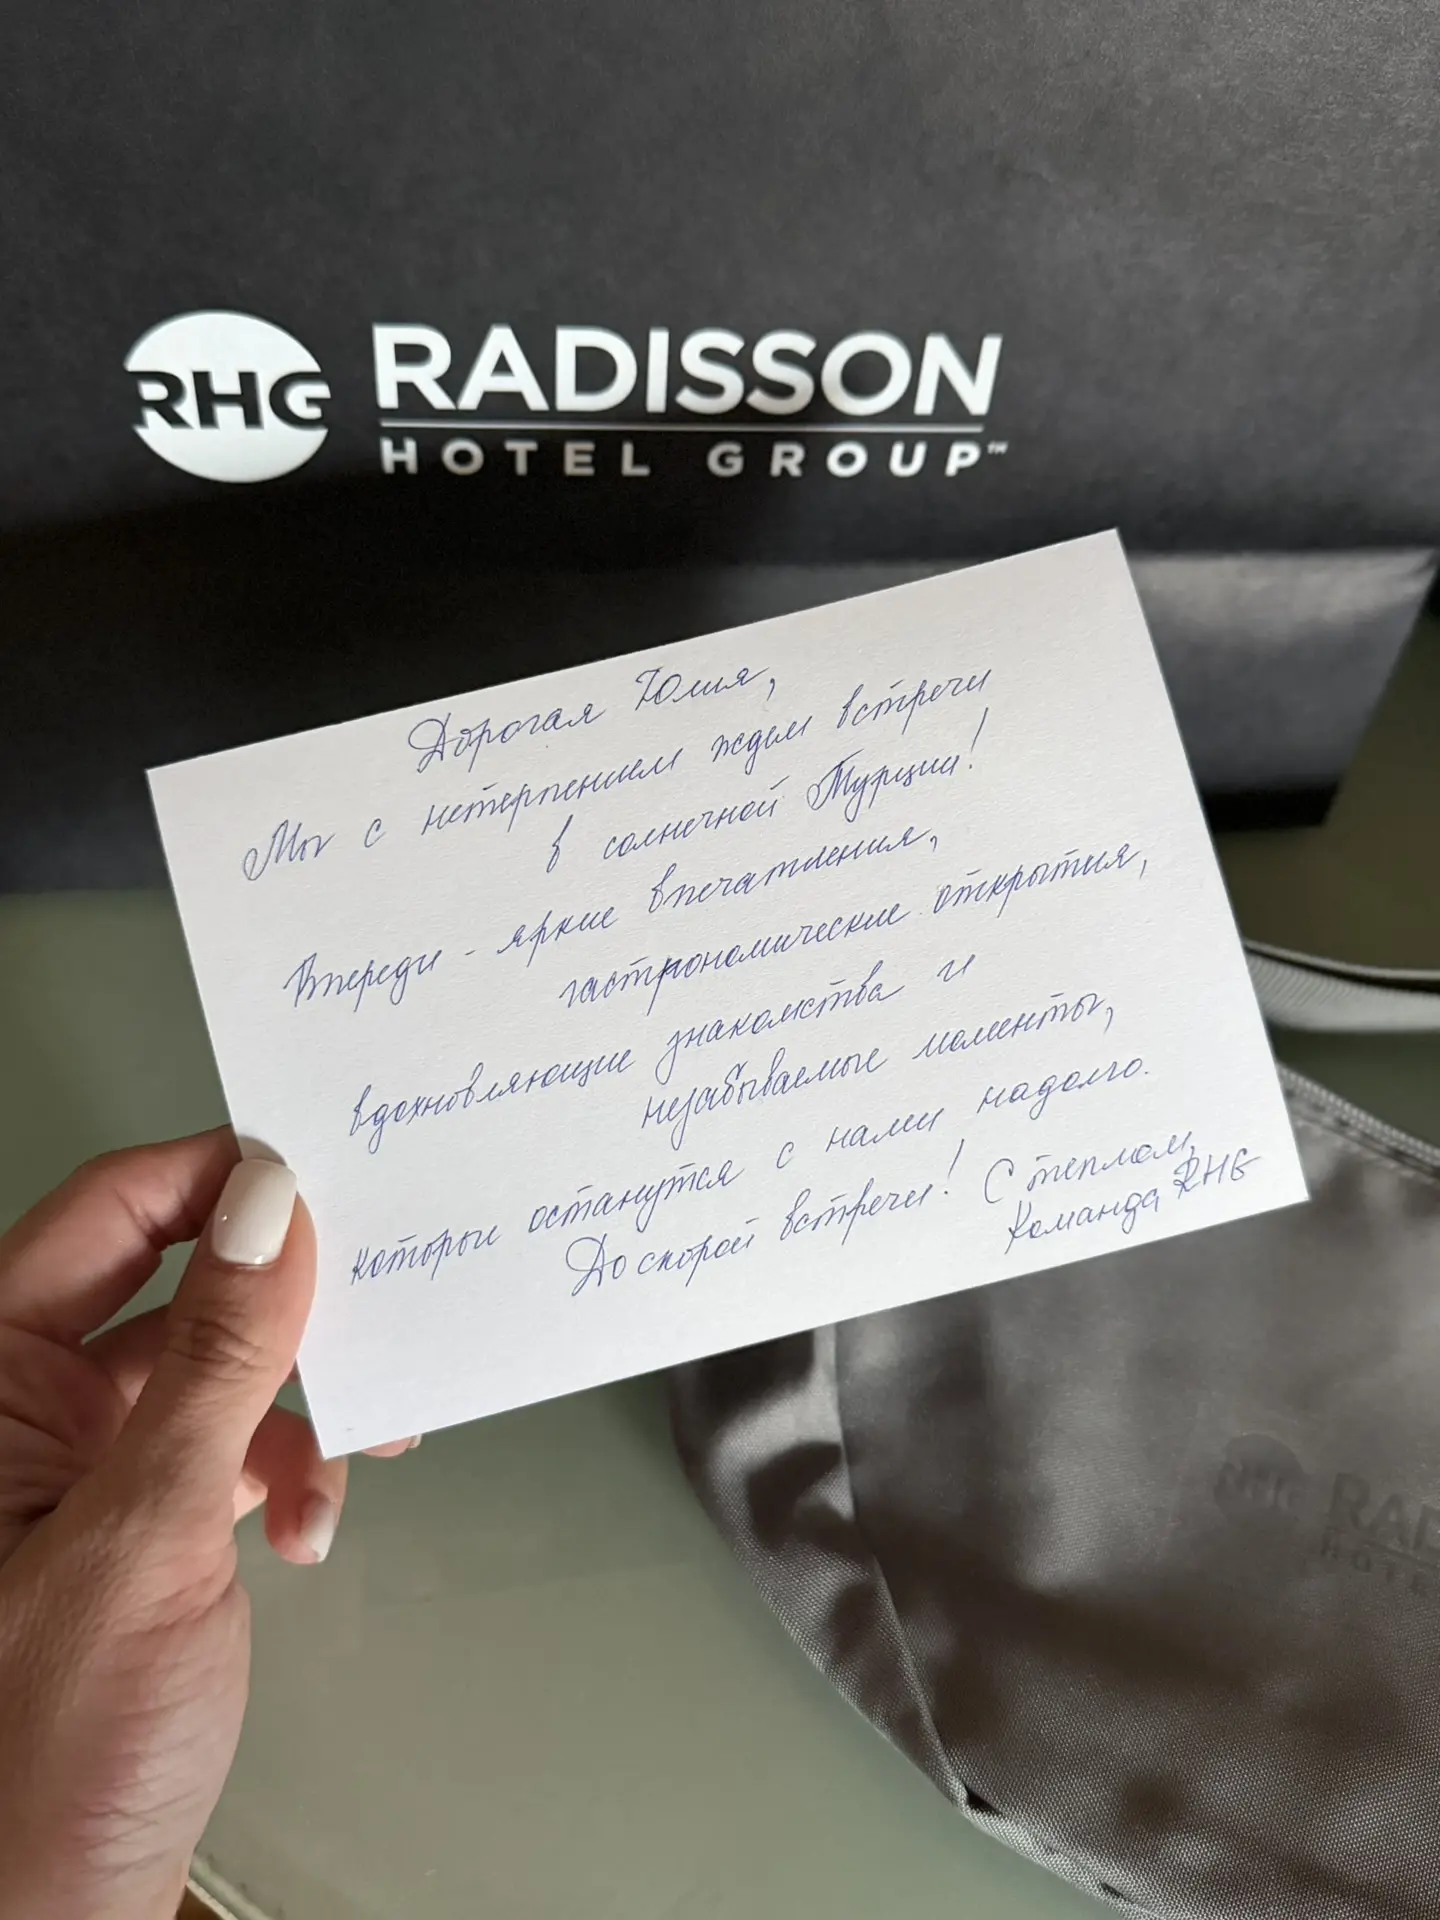 RHG RADISSON
HOTEL GROUP™
Дорогая Юлия,
Мы с нетерпением ждем встречи
в солнечной Турции!
Впереди - яркие впечатления,
гастрономические открытия,
вдохновляющие знакомства и
незабываемые моменты,
которые останутся с нами надолго.
До скорой встречи! С теплом,
Команда RHG
RHG RAD
HOTE